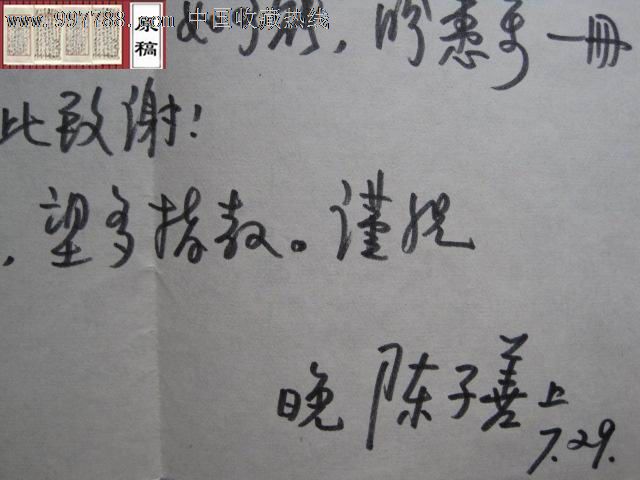 www.997788.com 中国收藏热线
原稿
如 , 惠 一冊
此致谢!
,望多指教。谨祝
晚 陈子善上
7.29.